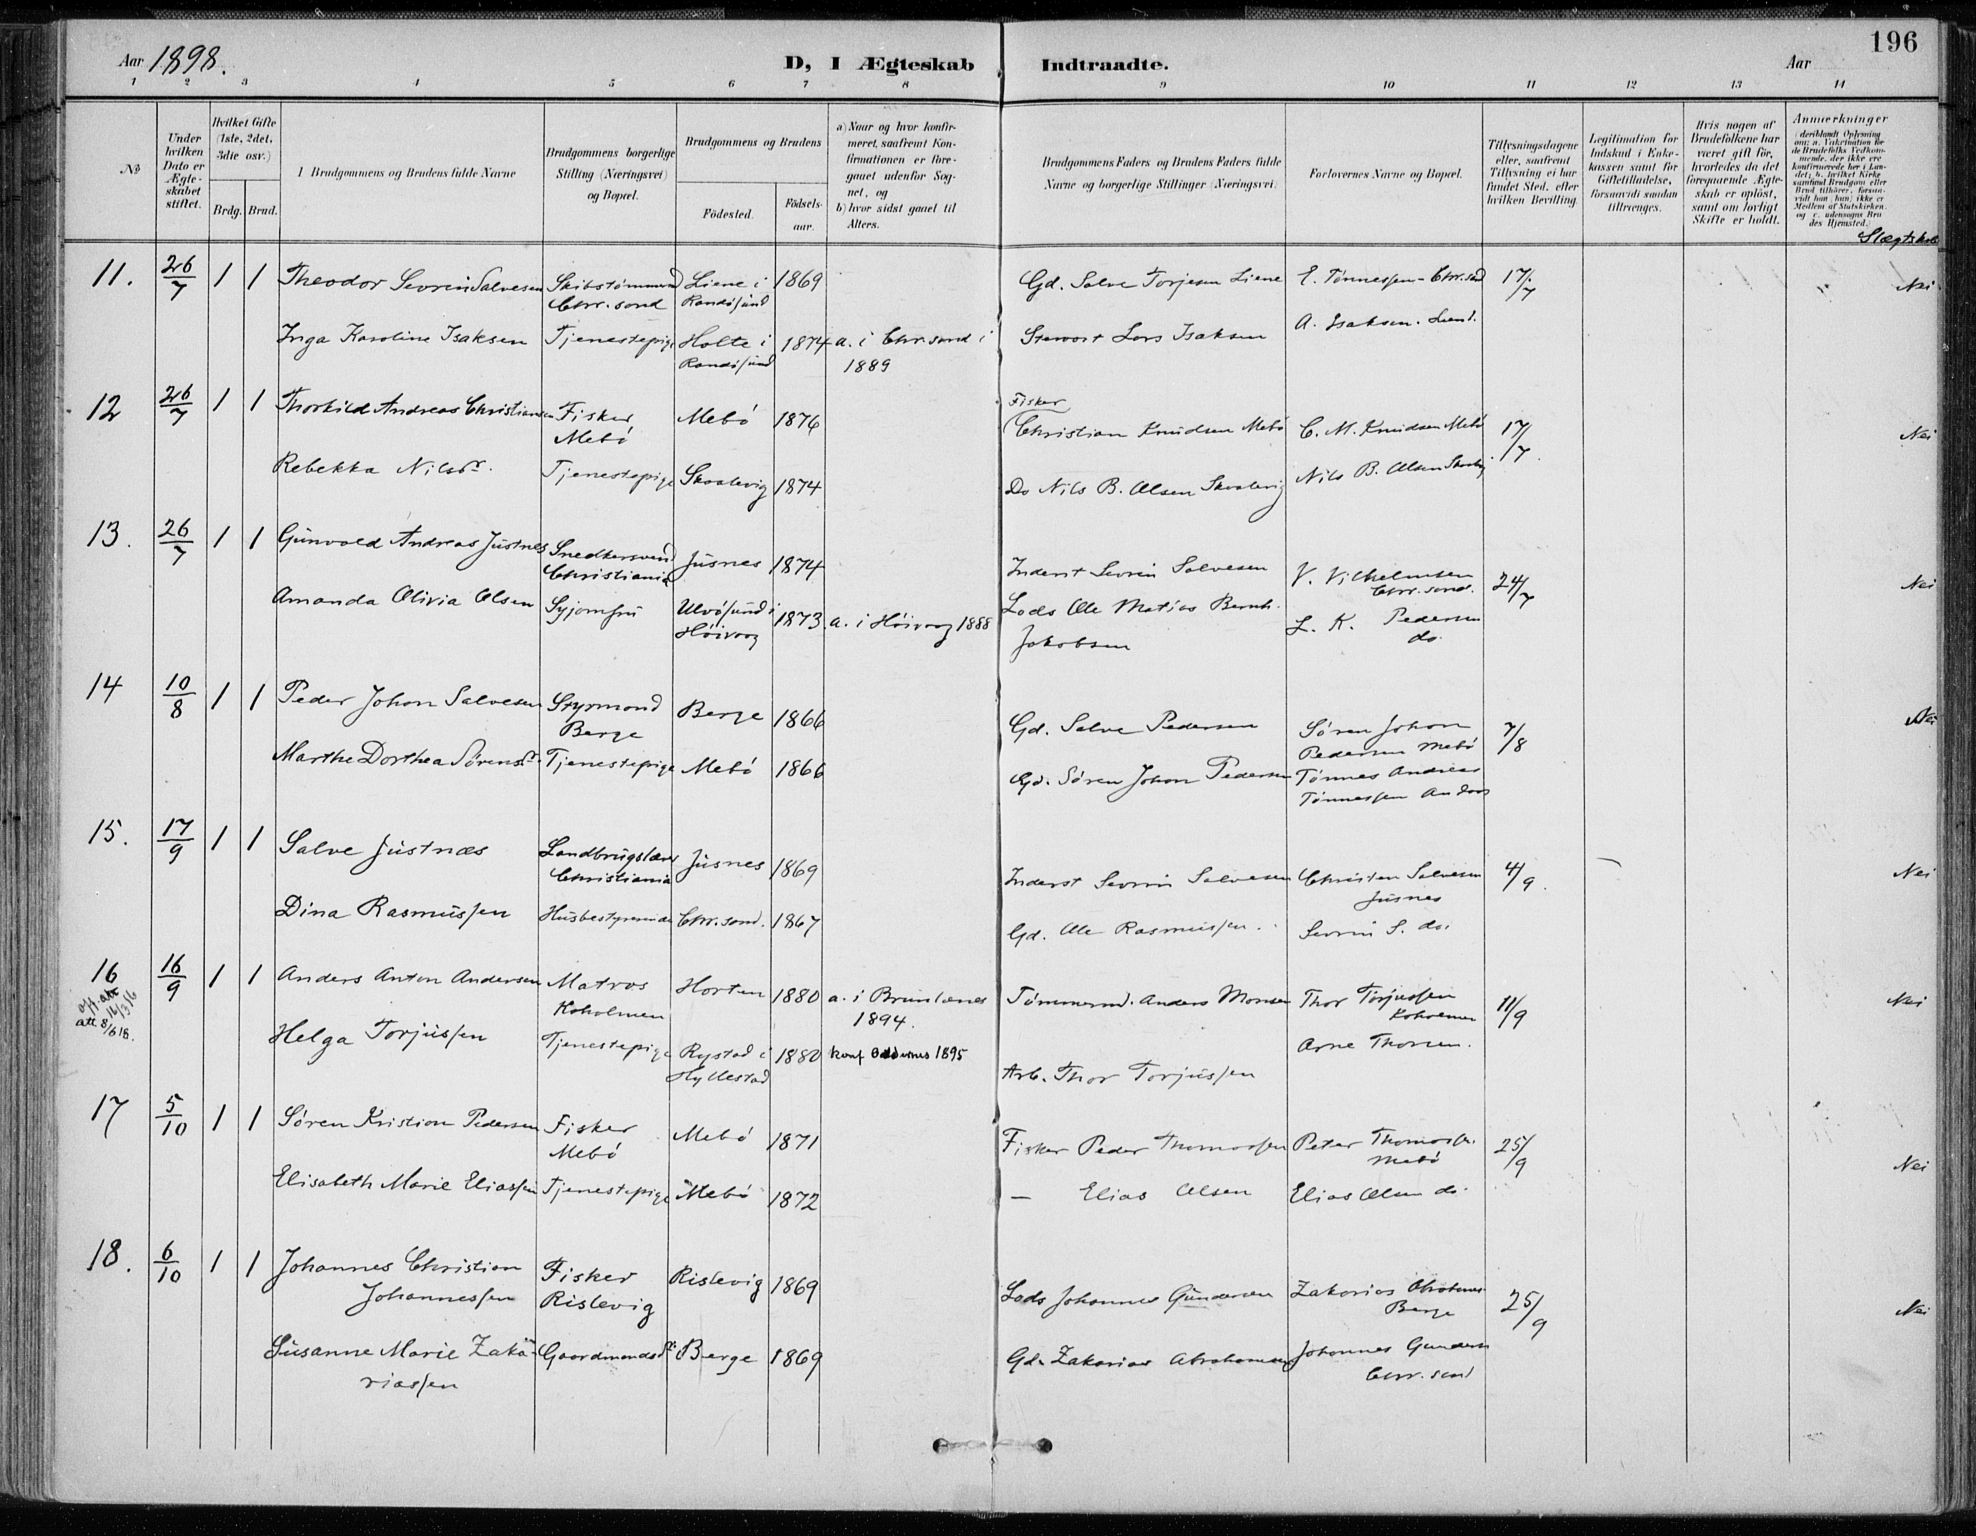 196
Aar 1898.
D, I Ægteskab Indtraadte.
Aar
1 2 3 4 5 6 7 8 9 10 11 12 13 14
No
Under hvilken Dato er Ægteskabet stiftet.
Hvilket Gifte (1ste, 2det, 3die osv.)
Brdg. Brud.
Brudgommens og Brudens fulde Navne
Brudgommens borgerlige Stilling (Næringsvei) og Bopæl.
Brudgommens og Brudens
Fødested.
Fødselsaar.
a) Naar og hvor konfirmeret, saafremt Konfirmationen er foregaaet udenfor Sognet, og
b) hvor sidst gaaet til Alters.
Brudgommens Faders og Brudens Faders fulde Navne og borgerlige Stillinger (Næringsvei).
Forlovernes Navne og Bopæl.
Tillysningsdagene eller, saafremt Tillysning ei har fundet Sted, efter hvilken Bevilling.
Legitimation for Indskud i Enkekassen samt for Giftetilladelse, forsaavidt saadan tiltrænges.
Hvis nogen af Brudefolkene har været gift før, hvorledes da det foregaaende Ægteskab er opløst, samt om lovligt Skifte er holdt.
Anmerkninger
11. 26/7 1 1 Theodor Sevrin Salvesen Skibstømmermd Chr.sand Liene i Randøsund 1869 Gd. Salve Torjesen Liene E. Tønnessen - Chr.sd 17/7 Nei
Inga Karoline Isaksen Tjenestepige Holte i Randøsund 1874 a. i Chr.sand i 1889 Stewart Lars Isaksen A. Isaksen. Lund.
12 26/7 1 1 Thorkild Andreas Christiansen Fisker Mebø Mebø 1876 Fisker Christian Knudsen Mebø C. M. Knudsen Mebø 17/7. Nei
Rebekka Nilsdr. Tjenestepige Skaalevig 1874 Do Nils B. Olsen Skaalevig Nils B. Olsen
13. 26/7 1 1 Gunvald Andreas Justnes Snedkersvend Christiania Jusnes 1874 Inderst Sevrin Salvesen V. Vilhelmsen Chr.sand. 24/7 Nei
Amanda Olivia Olsen Syjomfru Ulvøsund i Høivaag 1873 a. i Høivaag 1888 Lods Ole Matias Bernh. Jakobsen L. K. Pedersen do.
14 10/8 1 1 Peder Johan Salvesen Styrmand Berge Berge 1866 Gd. Salve Pedersen Søren Johan Pedersen Mebø 7/8 Nei
Marthe Dorthea Sørensdr. Tjenestepige Mebø 1866 Gd. Søren Johan Pedersen Tønnes Andreas Tønnessen
15. 17/9 1 1 Salve Justnæs Landbrugslærer Christiania Jusnes 1869 Inderst Sevrin Salvesen Christen Salvesen Jusnes 4/9. Nei
Dina Rasmussen Husbestyrerinde Chr.sand. 1867 Gd. Ole Rasmussen. Sevrin S. do.
16 16/9 1 1 Anders Anton Andersen Matros Koholmen Horten 1880 a. i Brunlanes 1894. Tømmermd. Anders Monsen Thor Torjussen Koholmen 11/9 Nei
att 8/6 18.
Helga Torjussen Tjenestepige Rystad i Hyllestad 1880 konf Oddernes 1895 Arb. Thor Torjussen Arne Thorsen.
17 5/10 1 1 Søren Kristian Pedersen Fisker Mebø Mebø 1871 Fisker Peder Thomassen Peter Thomassen Mebø 25/9 Nei
Elisabeth Marie Eliassen Tjenestepige Mebø 1872 — Elias Olsen Elias Olsen do.
18. 6/10 1 1 Johannes Christian Johannessen Fisker Rislevig Rislevig 1869 Lods Johannes Gundersen Zakarias Abrahams. Berge 25/9 Nei
Susanne Marie Zakariassen Gaardmandsdr. Berge 1869 Gd. Zakarias Abrahamsen Johannes Gunders Chr.sand